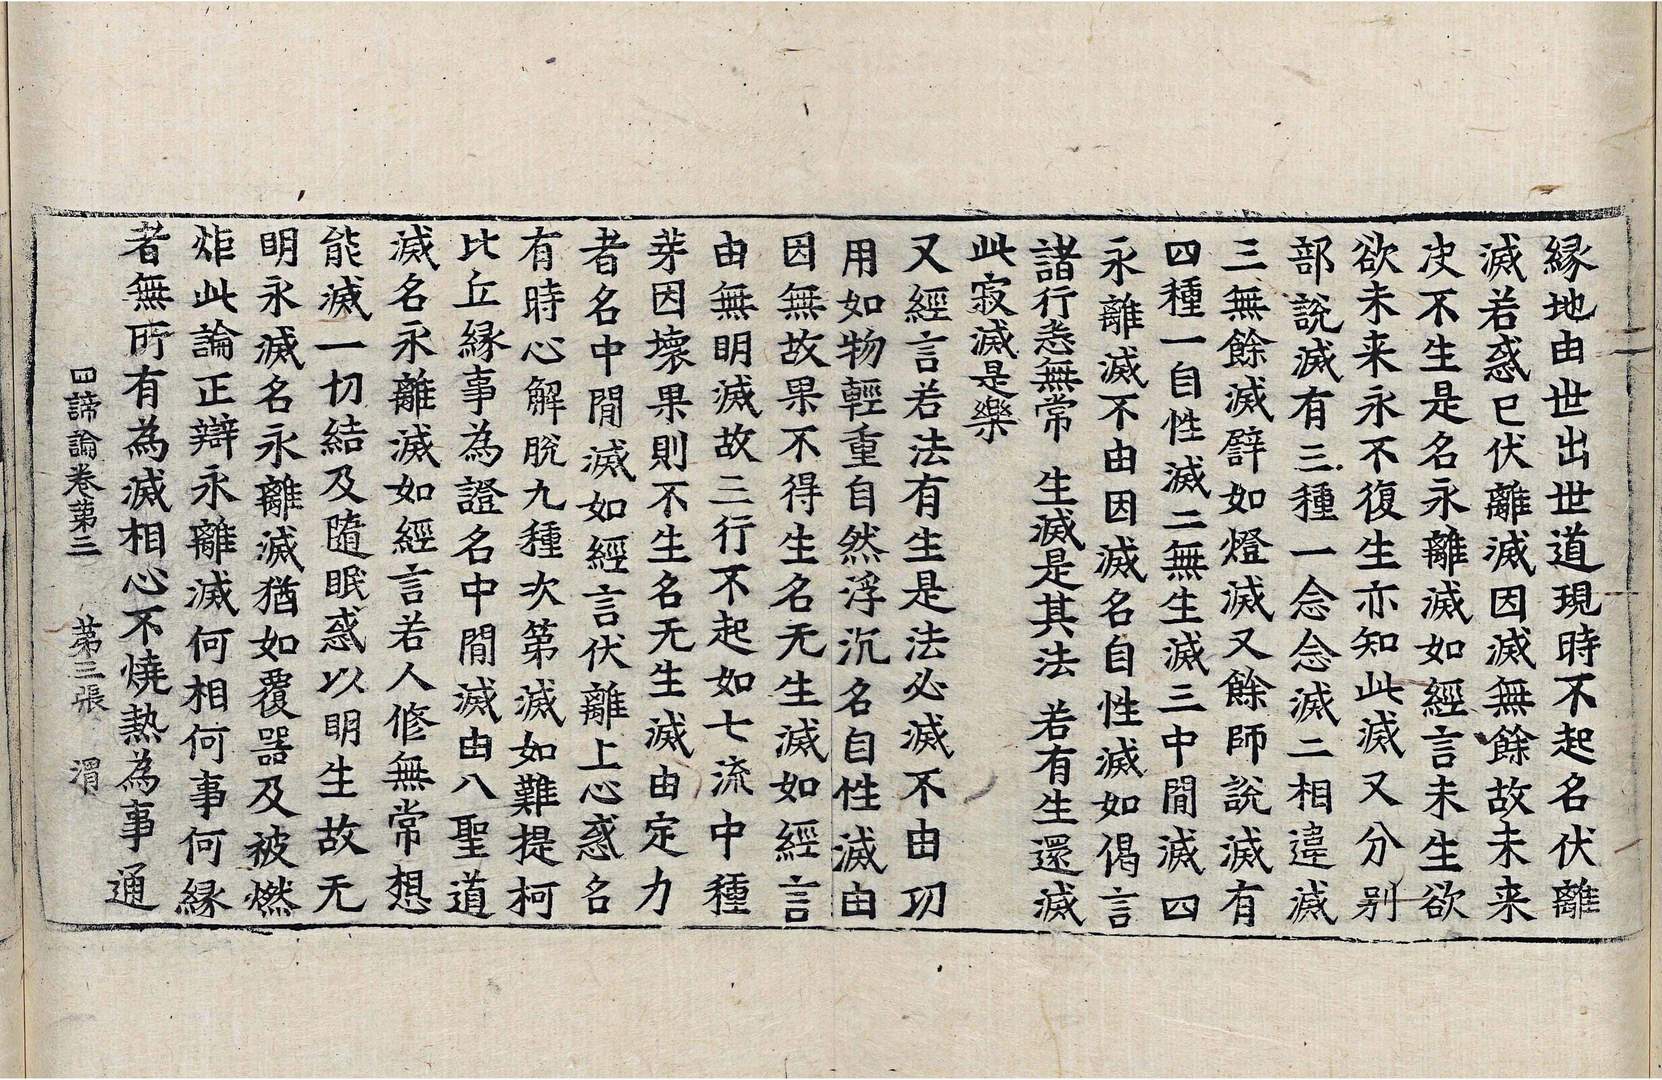 縁地由世出世道現時不起名伏離
滅若惑已伏離滅因滅無餘故未来
決不生是名永離滅如經言未生欲
欲未来永不復生亦知此滅又分别
部說滅有三種一念念滅二相違滅
三無餘滅譬如燈滅又餘師說滅有
四種一自性滅二無生滅三中閒滅四
永離滅不由因滅名自性滅如偈言
諸行悉無常　生滅是其法　若有生還滅
此寂滅是樂
又經言若法有生是法必滅不由功
用如物輕重自然浮沉名自性滅由
因無故果不得生名无生滅如經言
由無明滅故三行不起如七流中種
芽因壞果則不生名无生滅由定力
者名中閒滅如經言伏離上心惑名
有時心解脫九種次第滅如難提柯
比丘縁事為證名中閒滅由八聖道
滅名永離滅如經言若人修無常想
能滅一切結及隨眠惑以明生故无
明永滅名永離滅猶如覆器及被燃
炬此論正辯永離滅何相何事何縁
者無所有為滅相心不燒熱為事通
四諦論卷第三　第三張　渭